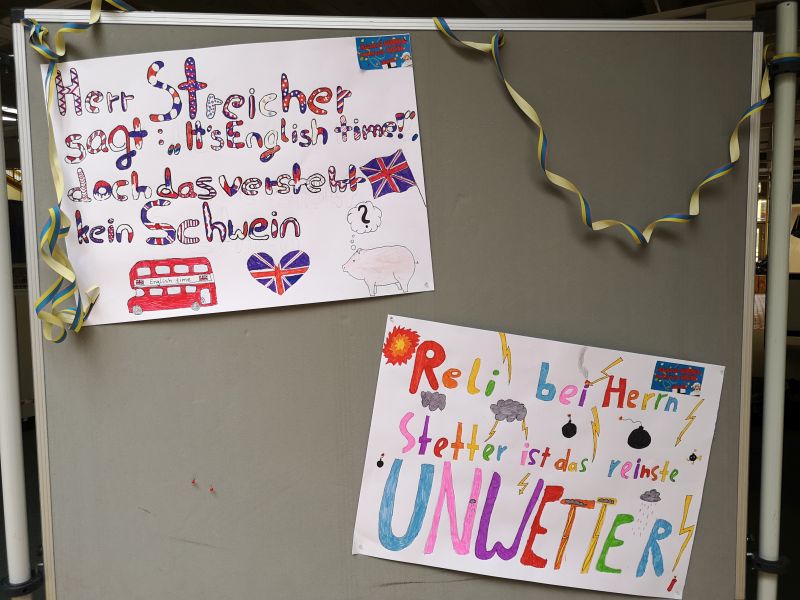 Herr Streicher
sagt: „It's English time!",
doch das versteht
kein Schwein
English time
?
Reli bei Herrn
Stetter ist das reinste
UNWETTER!